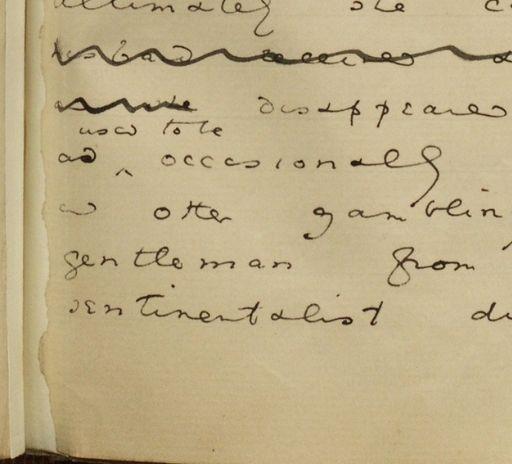 ultimately she
disappeared
used to be
ad occasionally
other gambling
gentleman from
sentimentalist